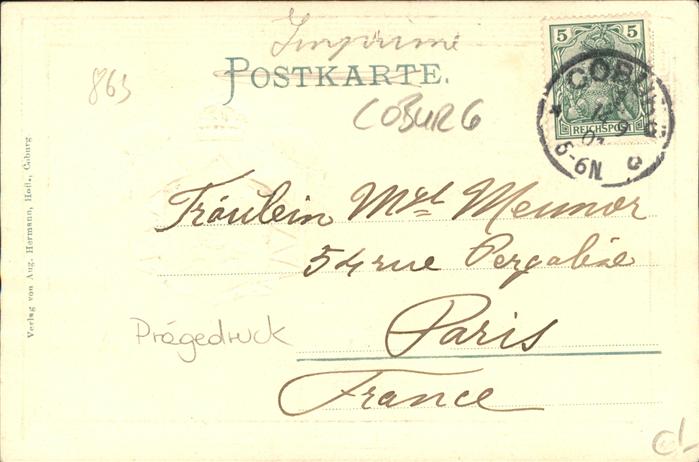 Imprimé
POSTKARTE.
863
COBURG
5 5
REICHSPOST
COBURG
5-6N.
Fräulein
54 rue
Paris
France
Prägedruck
Verlag von Aug. Hermann, Hofl., Coburg